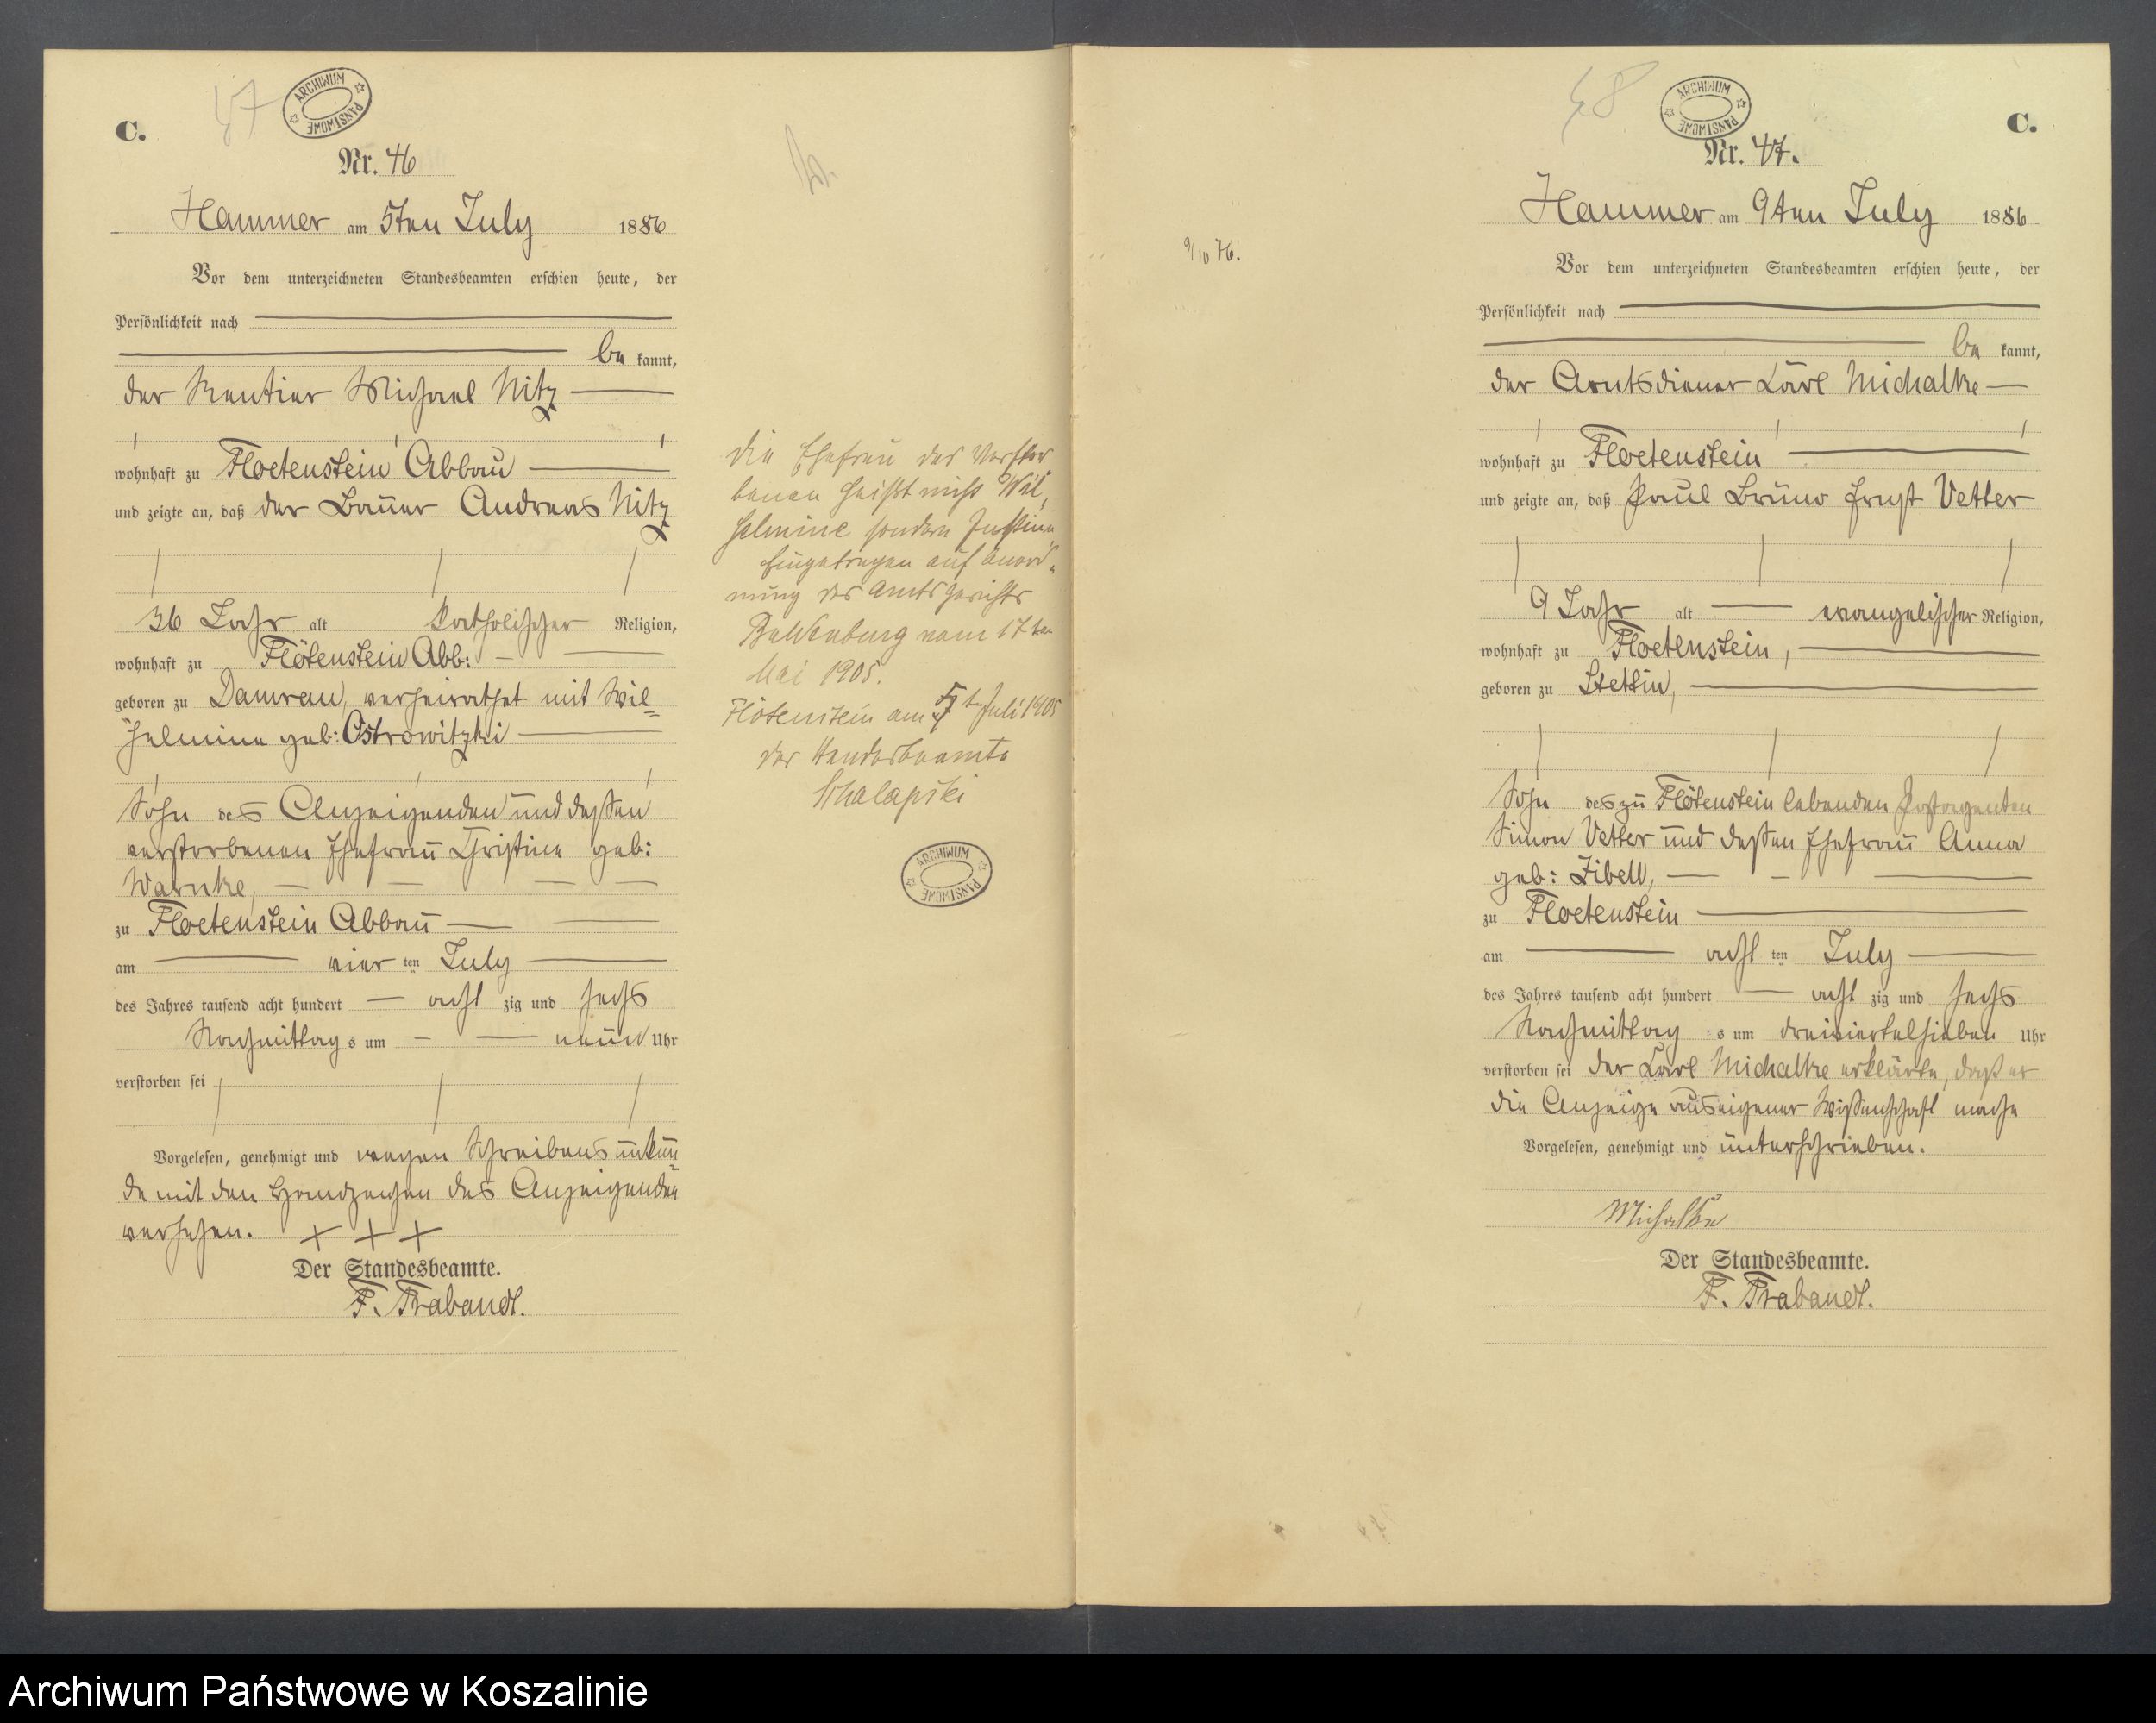 47
ARCHIWUM PAŃSTWOWE
C.
Nr. 46
Hammer am 5ten July 1886
Vor dem unterzeichneten Standesbeamten erschien heute, der
Persönlichkeit nach
be kannt,
der Rentier Michael Nitz
wohnhaft zu Floetenstein Abbau
und zeigte an, daß der Bauer Andreas Nitz
36 Jahr alt katholischer Religion,
wohnhaft zu Flötenstein Abb:
geboren zu Damrau, verheirathet mit Wil=
helmine geb: Ostrowitzki
Sohn des Anzeigenden und dessen
verstorbenen Ehefrau Christine geb:
Warnke,
zu Floetenstein Abbau
am vier ten July
des Jahres tausend acht hundert acht zig und sechs
Nachmittag s um neun Uhr
verstorben sei
Vorgelesen, genehmigt und wegen Schreibensunkun=
de mit den Handzeichen des Anzeigenden
versehen. + + +
Der Standesbeamte.
F. Trabandt.
Die Ehefrau des Verstor
benen heißt nicht Wil„
helmine sondern Justine
Eingetragen auf Anord„
nung des Amtsgerichts
Baldenburg vom 17ten
Mai 1905.
Flötenstein am 5ten Juli 1905
Der Standesbeamte
Schalapski
ARCHIWUM PAŃSTWOWE
9/10 76.
48
ARCHIWUM PAŃSTWOWE
C.
Nr. 47.
Hammer am 9ten July 1886
Vor dem unterzeichneten Standesbeamten erschien heute, der
Persönlichkeit nach
be kannt,
der Amtsdiener Carl Michalke
wohnhaft zu Floetenstein
und zeigte an, daß Paul Bruno Ernst Vetter
9 Jahr alt evangelischer Religion,
wohnhaft zu Floetenstein,
geboren zu Stettin,
Sohn des zu Flötenstein lebenden Postagenten
Simon Vetter und dessen Ehefrau Anna
geb: Zibell,
zu Floetenstein
am acht ten July
des Jahres tausend acht hundert acht zig und sechs
Nachmittag s um dreiviertelsieben Uhr
verstorben sei der Carl Michalke erklärte, daß er
die Anzeige aus eigener Wissenschaft mache
Vorgelesen, genehmigt und unterschrieben.
Michalke
Der Standesbeamte.
F. Trabandt.
Archiwum Państwowe w Koszalinie